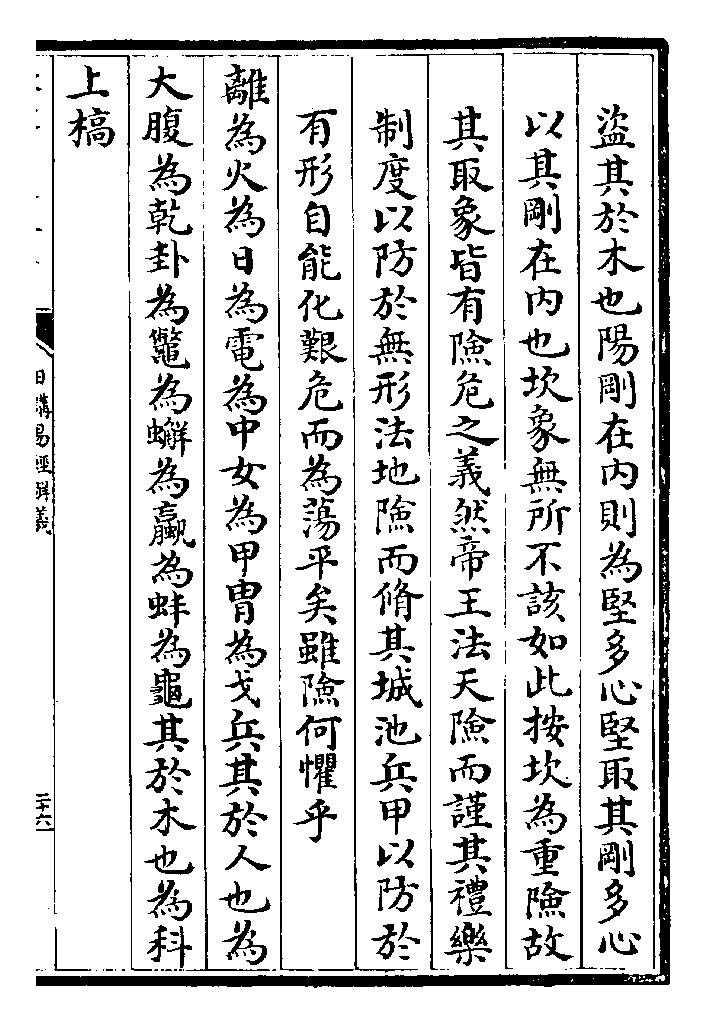 盜其於木也陽剛在內則為堅多心堅取其剛多心
以其剛在內也坎象無所不該如此按坎為重險故
其取象皆有險危之義然帝王法天險而謹其禮樂
制度以防於無形法地險而脩其城池兵甲以防於
有形自能化艱危而為蕩平矣雖險何懼乎
離為火為日為電為中女為甲胄為戈兵其於人也為
大腹為乾卦為鼈為蠏為蠃為蚌為龜其於木也為科
上槁
日講易經解義
二十六